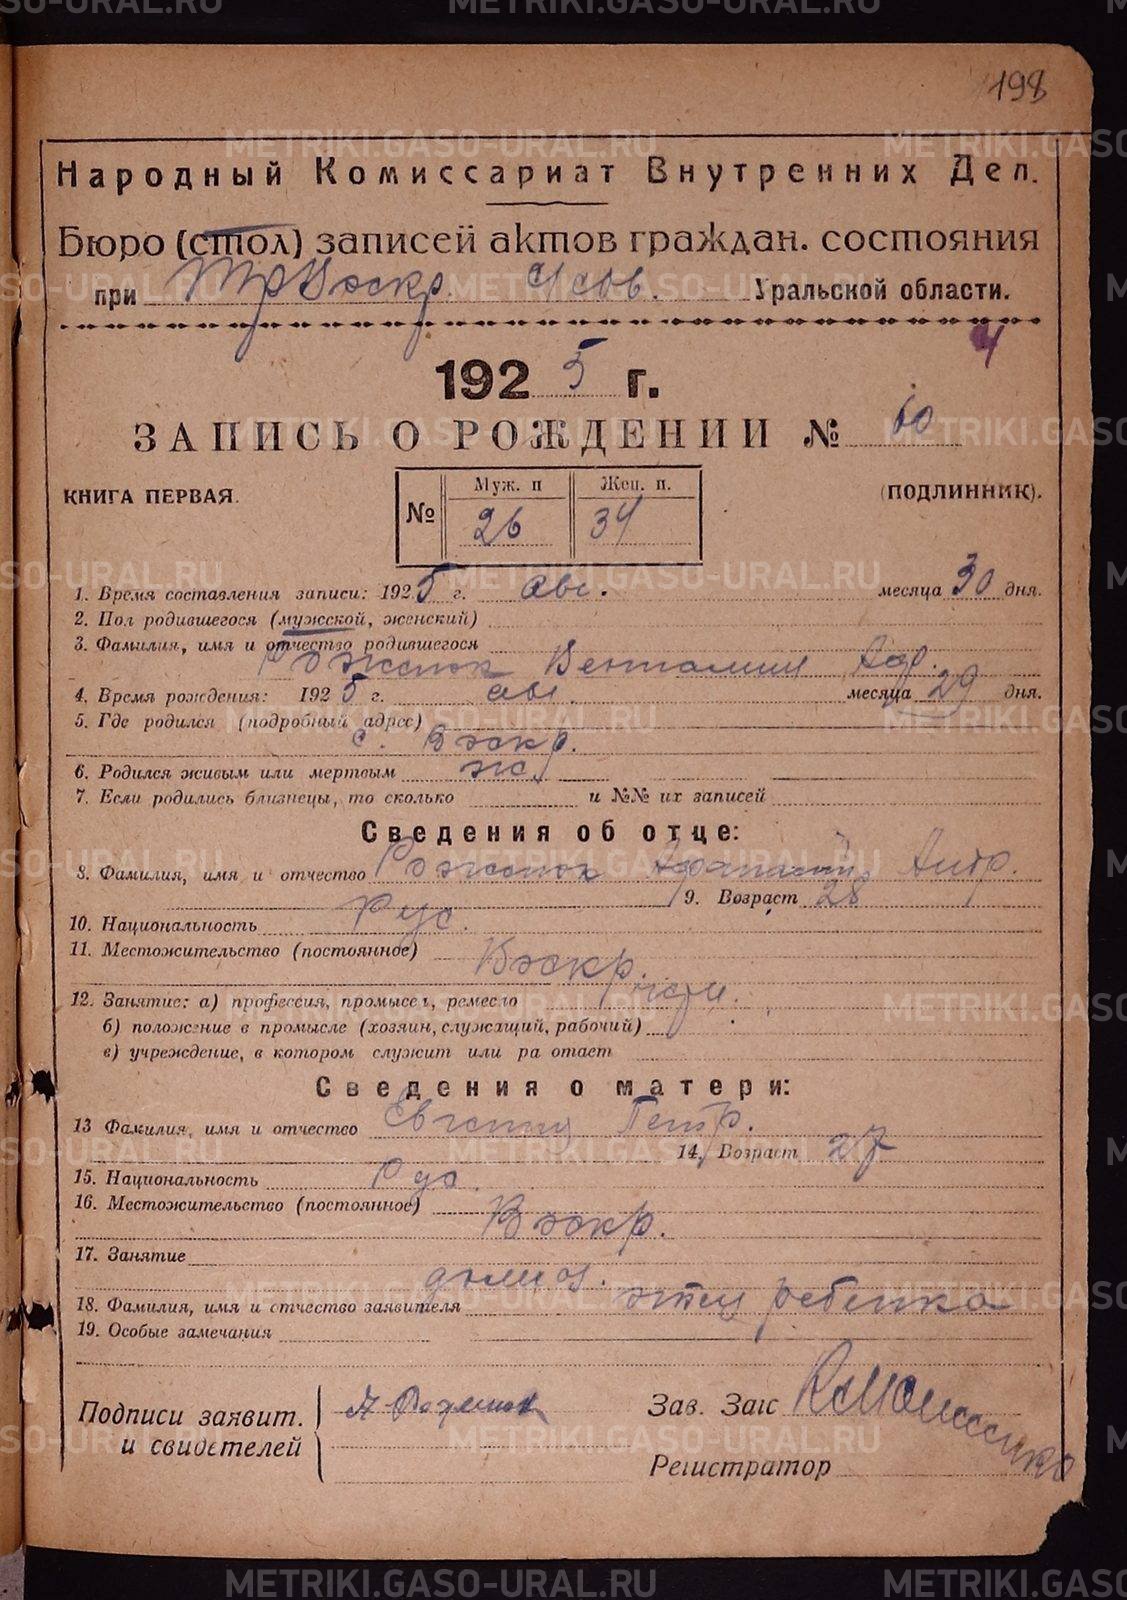 198
Народный Комиссариат Внутренних Дел.
Бюро (стол) записей актов граждан. состояния
при Уральской области.
4
1925 г.
ЗАПИСЬ О РОЖДЕНИИ № 60
КНИГА ПЕРВАЯ. (ПОДЛИННИК).
№ Муж. п Жен. п.
26 34
1. Время составления записи: 1925 г. авг. месяца 30 дня.
2. Пол родившегося (мужской, женский)
3. Фамилия, имя и отчество родившегося
Вениамин Аф.
4. Время рождения: 1925 г. авг. месяца 29 дня.
5. Где родился (подробный адрес)
с. Воскр.
6. Родился живым или мертвым ж.
7. Если родились близнецы, то сколько и №№ их записей
Сведения об отце:
8. Фамилия, имя и отчество Андр.
9. Возраст 28
10. Национальность Рус.
11. Местожительство (постоянное)
Воскр.
12. Занятие: а) профессия, промысел, ремесло
б) положение в промысле (хозяин, служащий, рабочий)
в) учреждение, в котором служит или ра отает
Сведения о матери:
13 Фамилия, имя и отчество Евгения Петр.
14. Возраст 27
15. Национальность Рус.
16. Местожительство (постоянное)
Воскр.
17. Занятие
домох.
18. Фамилия, имя и отчество заявителя отец ребенка
19. Особые замечания
Подписи заявит. Зав. Загс
и свидетелей
Регистратор
METRIKI.GASO-URAL.RU